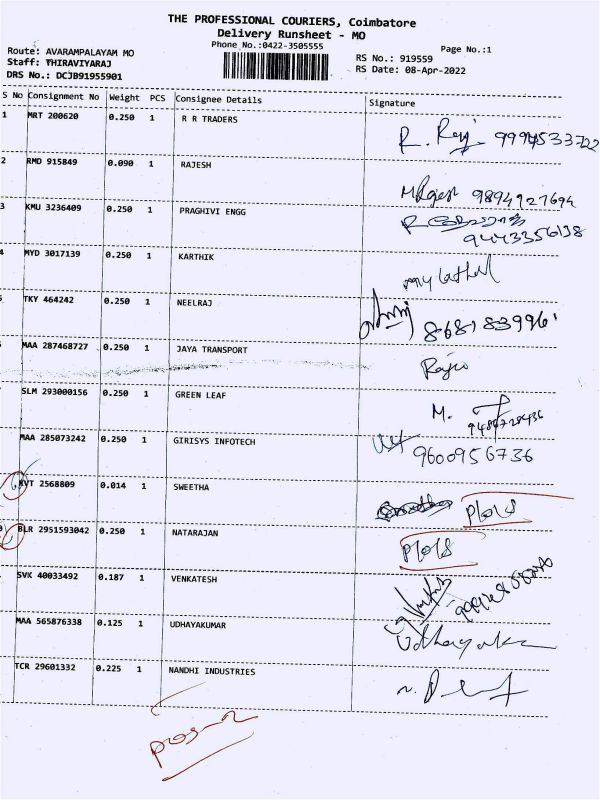 THE PROFESSIONAL COURIERS, Coimbatore
Delivery Runsheet - MO
Phone No.:0422-3505555
Page No.:1
Route: AVARAMPALAYAM MO
RS No.: 919559
Staff: THIRAVIYARAJ
RS Date: 08-Apr-2022
DRS No.: DCJB91955901
S No Consignment No Weight PCS Consignee Details Signature
1 MRT 200620 0.250 1 R R TRADERS
R. Raj 9994533722
2 RMD 915849 0.090 1 RAJESH
9894927694
3 KMU 3236409 0.250 1 PRAGHIVI ENGG
9443356138
4 MYD 3017139 0.250 1 KARTHIK
TKY 464242 0.250 1 NEELRAJ
MAA 287468727 0.250 1 JAYA TRANSPORT
SLM 293000156 0.250 1 GREEN LEAF
M.
MAA 285073242 0.250 1 GIRISYS INFOTECH
9600956736
KVT 2568809 0.014 1 SWEETHA
BLR 2951593042 0.250 1 NATARAJAN
SVK 40033492 0.187 1 VENKATESH
MAA 565876338 0.125 1 UDHAYAKUMAR
TCR 29601332 0.225 1 NANDHI INDUSTRIES